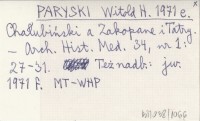 PARYSKI Witold H. 1971 e.
Chałubiński a Zakopane i Tatry.
– Arch. Hist. Med. 34, nr 1:
27-31. Też nadb: jw.
1971 f. MT-WHP